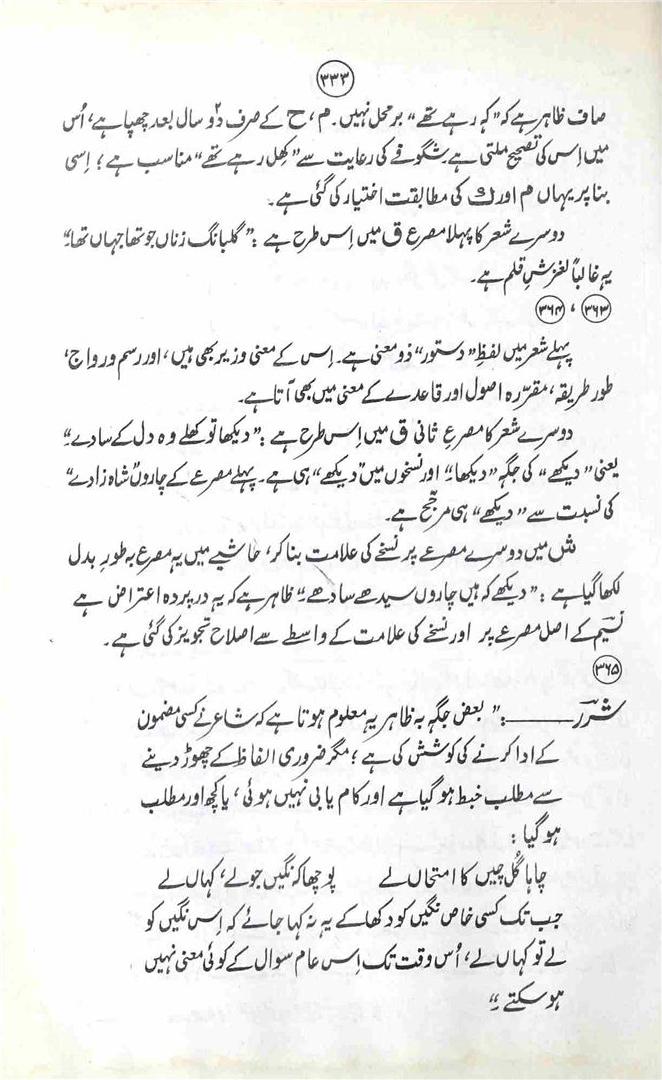 ۳۳۳
صاف ظاہر ہے کہ ”کہہ رہے تھے“ برمحل نہیں۔ م، ح کے صرف دو ۲ سال بعد چھپا ہے، اُس
میں اِس کی تصحیح ملتی ہے۔ شگوفے کی رعایت سے ”کھِل رہے تھے“ مناسب ہے؛ اِسی
بنا پر یہاں م اور ک کی مطابقت اختیار کی گئی ہے۔
دوسرے شعر کا پہلا مصرع ق میں اِس طرح ہے: ”گلبانگ زناں جو تھا جہاں تھا۔“
یہ غالباً لغزشِ قلم ہے۔
۳۶۳ ، ۳۶۴
پہلے شعر میں لفظِ ”دستور“ ذو معنی ہے۔ اِس کے معنی وزیر بھی ہیں، اور رسم و رواج،
طور طریقہ، مقرّرہ اصول اور قاعدے کے معنی میں بھی آتا ہے۔
دوسرے شعر کا مصرعِ ثانی ق میں اِس طرح ہے: ”دیکھا تو کھلے وہ دل کے سادے۔“
یعنی ”دیکھے“ کی جگہ ”دیکھا“۔ اور نسخوں میں ”دیکھے“ ہی ہے۔ پہلے مصرعے کے ”چاروں شاہ زادے“
کی نسبت سے ”دیکھے“ ہی مرجّح ہے۔
ش میں دوسرے مصرعے پر نسخے کی علامت بنا کر، حاشیے میں یہ مصرع بہ طورِ بدل
لکھا گیا ہے: ”دیکھے کہ ہیں چاروں سیدھے سادھے۔“ ظاہر ہے کہ یہ در پردہ اعتراض ہے
نسیم کے اصل مصرعے پر اور نسخے کی علامت کے واسطے سے اصلاح تجویز کی گئی ہے۔
۳۶۵
شرر ــــــ: ”بعض جگہ بہ ظاہر یہ معلوم ہوتا ہے کہ شاعر نے کسی مضمون
کے ادا کرنے کی کوشش کی ہے؛ مگر ضروری الفاظ کے چھوڑ دینے
سے مطلب خبط ہو گیا ہے اور کام یابی نہیں ہوئی، یا کچھ اور مطلب
ہو گیا:
چاہا گُل چیں کا امتحاں لے پوچھا کہ نگیں جو لے، کہاں لے
جب تک کسی خاص نگیں کو دکھا کے یہ نہ کہا جائے کہ اِس نگیں کو
لے تو کہاں لے، اُس وقت تک اِس عام سوال کے کوئی معنی نہیں
ہو سکتے۔“